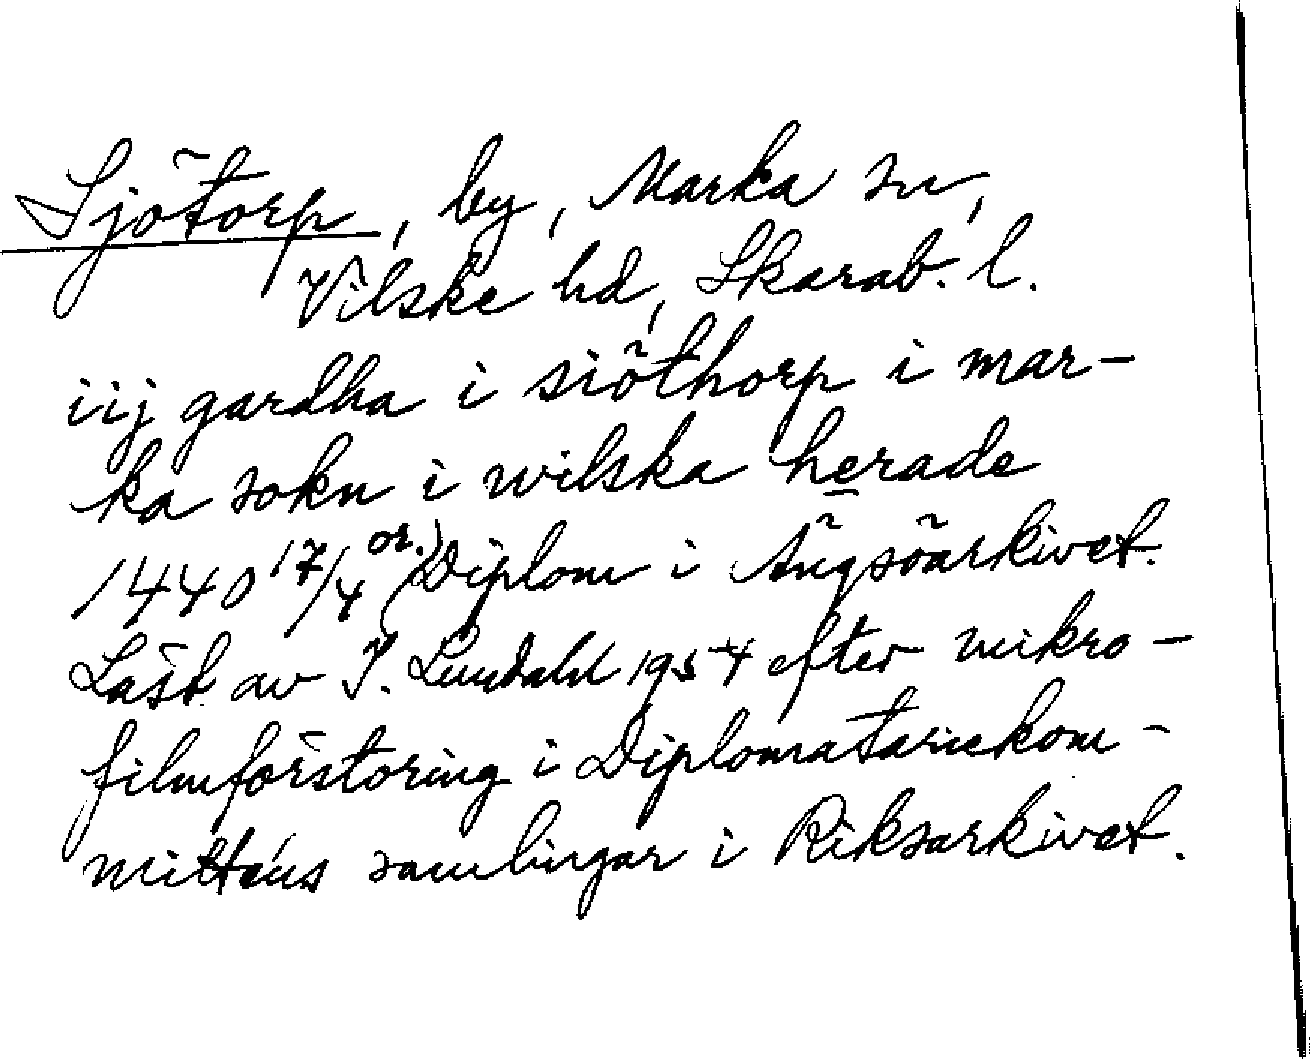 Sjötorp, by, Marka sn,
Vilske hd, Skarab. l.
iij gardha i siöthorp i mar-
ka sokn i wilska herade
1440 17/4 or. (Diplom i Ängsöarkivet.
Läst av I. Lundahl 1954 efter mikro-
filmförstoring i Diplomatariekom-
mitténs samlingar i Riksarkivet.